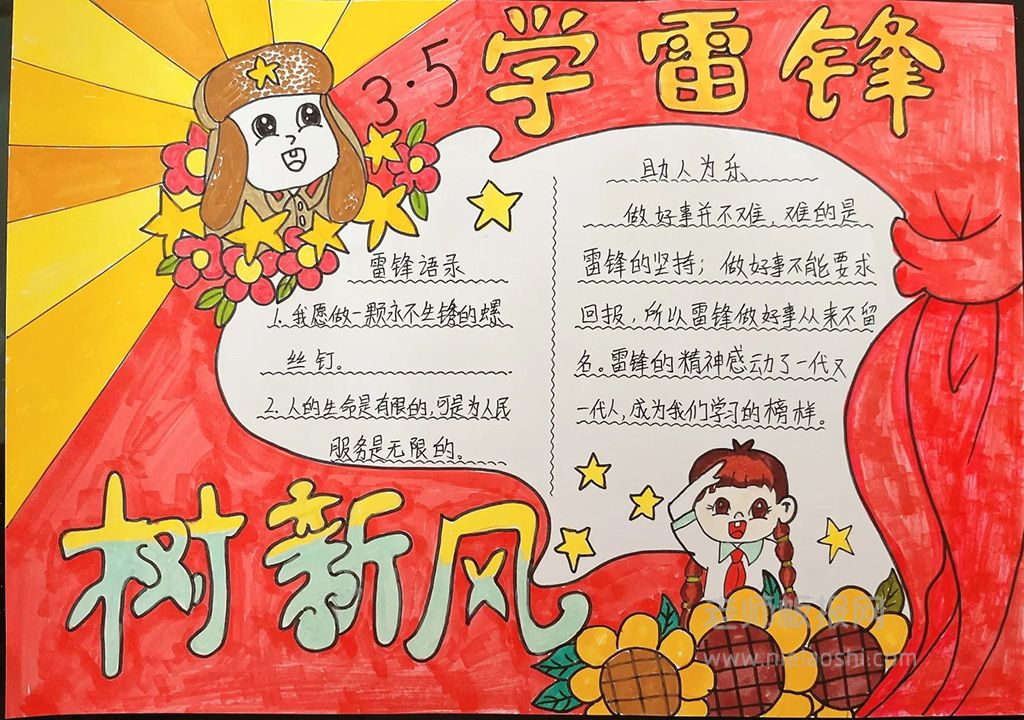 3·5
学雷锋
雷锋语录
1. 我愿做一颗永不生锈的螺
丝钉。
2. 人的生命是有限的,可是为人民
服务是无限的。
助人为乐
做好事并不难,难的是
雷锋的坚持；做好事不能要求
回报,所以雷锋做好事从来不留
名。雷锋的精神感动了一代又
一代人,成为我们学习的榜样。
树新风